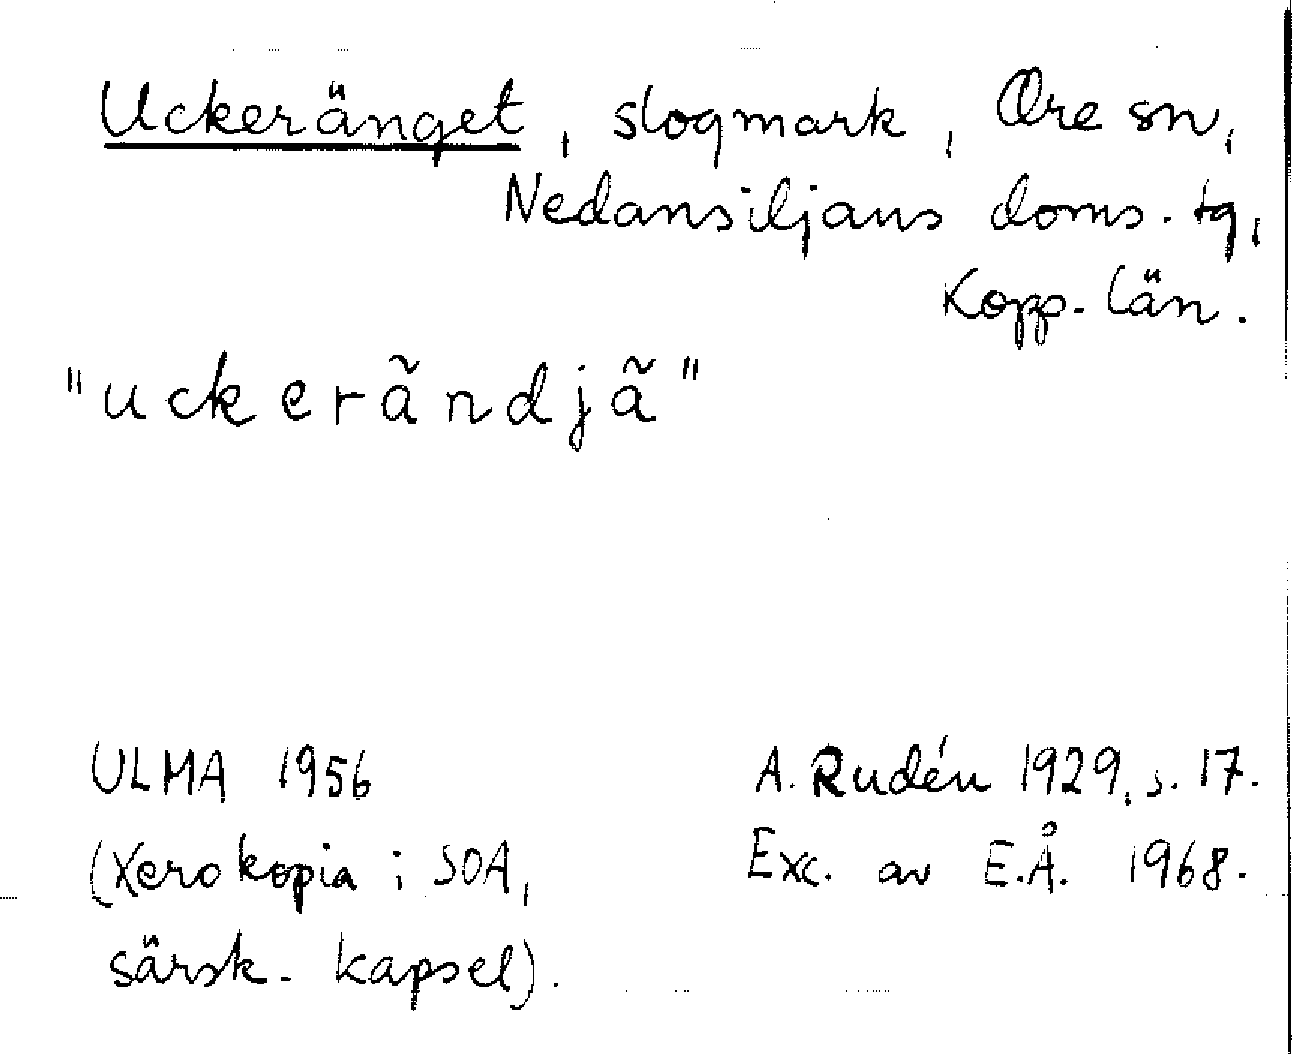 Uckeränget, slogmark, Ore sn,
Nedansiljans doms. tg,
Kopp. län.
"uckerãndjã"
ULMA 1956
(Xerokopia i SOA,
särsk. kapsel).
A. Rudén 1929, s. 17.
Exc. av E.Å. 1968.